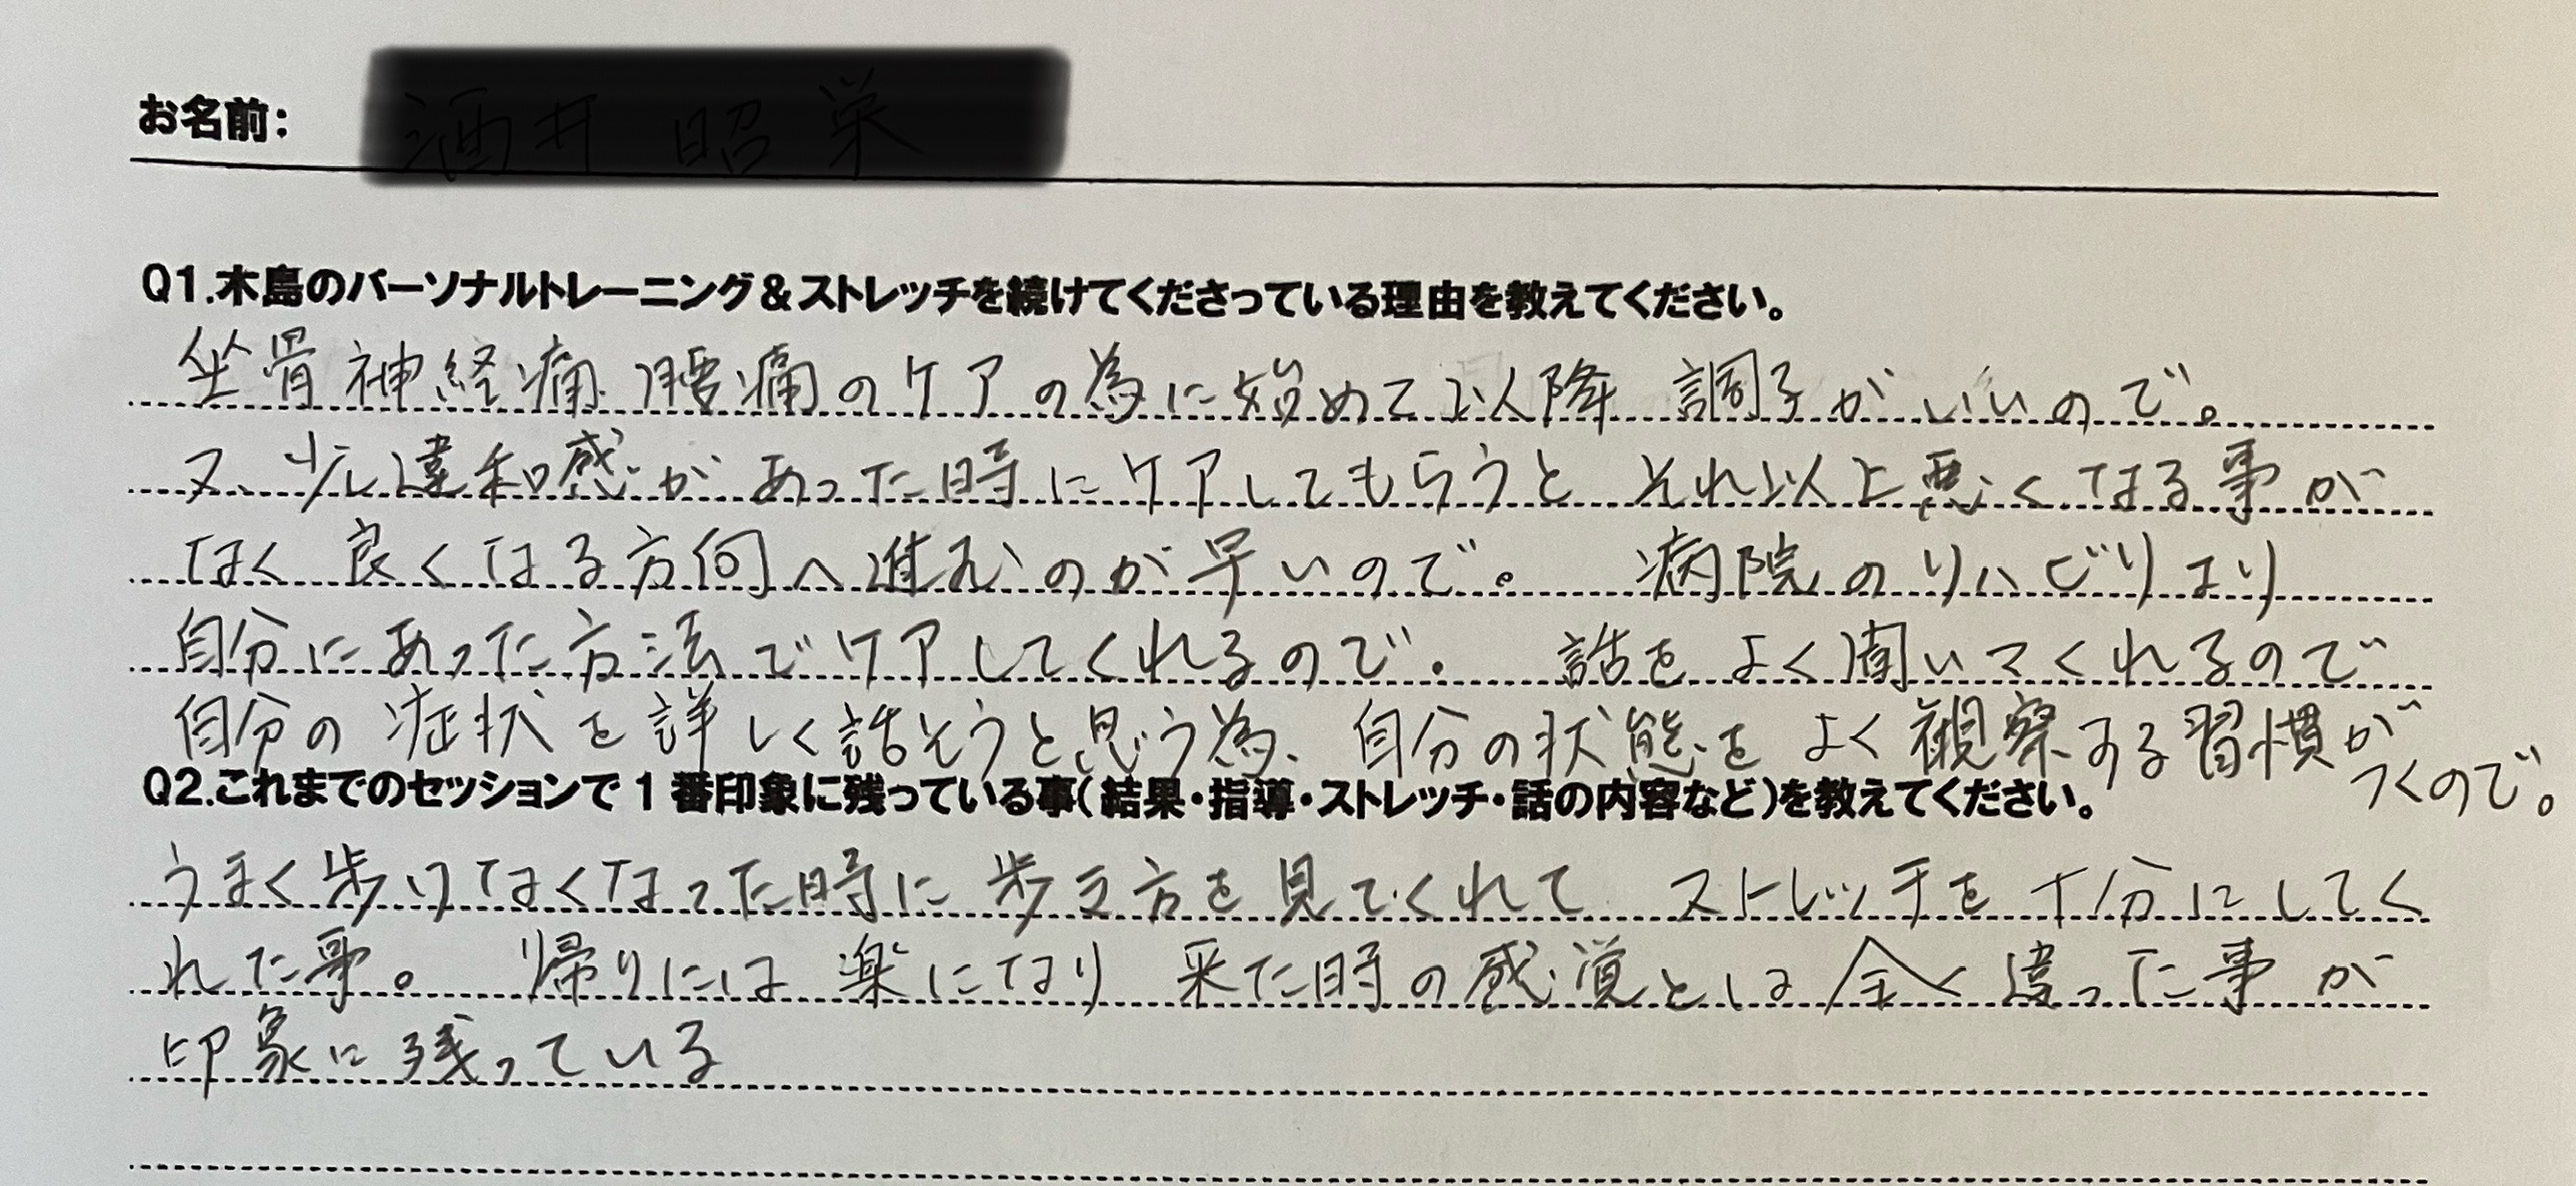 お名前:
Q1.木島のパーソナルトレーニング&ストレッチを続けてくださっている理由を教えてください。
坐骨神経痛、腰痛のケアの為に始めて以降 調子がいいので。
又、少し違和感があった時にケアしてもらうと それ以上悪くなる事が
なく 良くなる方向へ進むのが早いので。 病院のリハビリより
自分にあった方法でケアしてくれるので。 話をよく聞いてくれるので
自分の症状を詳しく話そうと思う為、自分の状態をよく観察する習慣が
つくので。
Q2.これまでのセッションで1番印象に残っている事(結果・指導・ストレッチ・話の内容など)を教えてください。
うまく歩けなくなった時に歩き方を見てくれて ストレッチを十分にしてく
れた事。 帰りには楽になり 来た時の感覚とは全く違った事が
印象に残っている